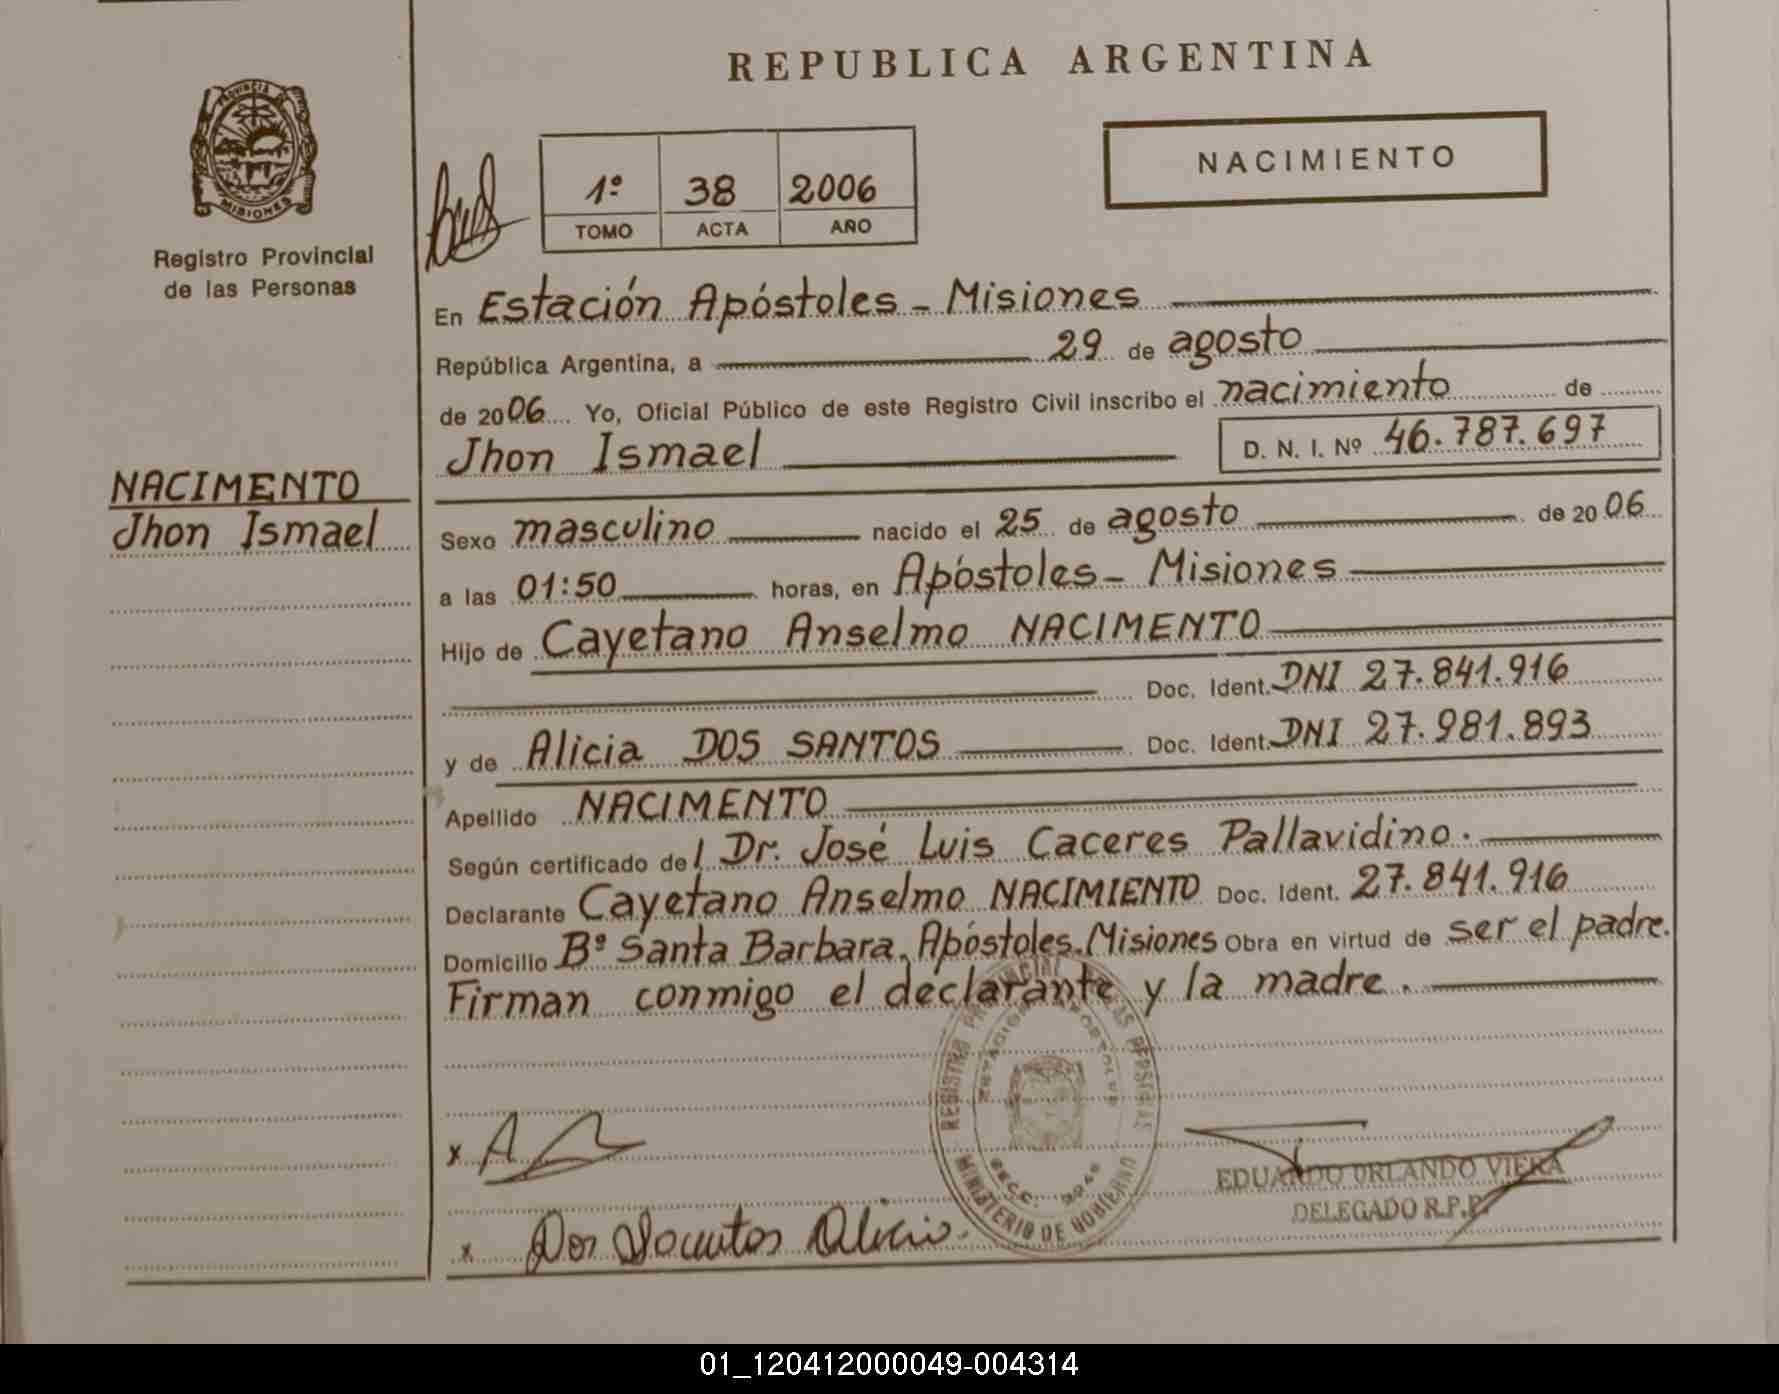 REPUBLICA ARGENTINA
PROVINCIA DE
MISIONES
Registro Provincial
de las Personas
1º 38 2006
TOMO ACTA AÑO
NACIMIENTO
En Estación Apóstoles - Misiones
República Argentina, a 29 de agosto
de 2006 Yo, Oficial Público de este Registro Civil inscribo el nacimiento de
Jhon Ismael D. N. I. Nº 46.787.697
NACIMENTO
Jhon Ismael
Sexo masculino nacido el 25 de agosto de 2006
a las 01:50 horas, en Apóstoles - Misiones
Hijo de Cayetano Anselmo NACIMENTO
Doc. Ident. DNI 27.841.916
y de Alicia DOS SANTOS Doc. Ident. DNI 27.981.893
Apellido NACIMENTO
Según certificado del Dr. José Luis Caceres Pallavidino.
Declarante Cayetano Anselmo NACIMIENTO Doc. Ident. 27.841.916
Domicilio Bº Santa Barbara, Apóstoles-Misiones Obra en virtud de ser el padre.
Firman conmigo el declarante y la madre.
REGISTRO PROVINCIAL DE LAS PERSONAS
ESTACION APOSTOLES
MINISTERIO DE GOBIERNO
x
x Dos Santos Alicia.
EDUARDO ORLANDO VIERA
DELEGADO R.P.P.
01_120412000049-004314